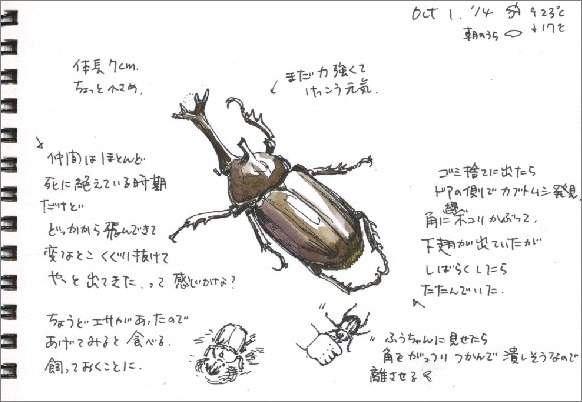 Oct 1. '14 23℃
17℃
体長7cm.
ちょっと小さめ.
まだ力強くて
けっこう元気.
仲間はほとんど
死に絶えている時期
だけど
どっかから飛んできて
変なとこくぐり抜けて
やっと出てきた.って感じかな?
ちょうどエサがあったので
あげてみると食べる.
飼っておくことに.
ゴミ捨てに出たら
ドアの側でカブトムシ発見
角にホコリかぶって.
下翅が出ていたが
しばらくしたら
たたんでいた.
ふうちゃんに見せたら
角をがっつりつかんで潰しそうなので
離させる